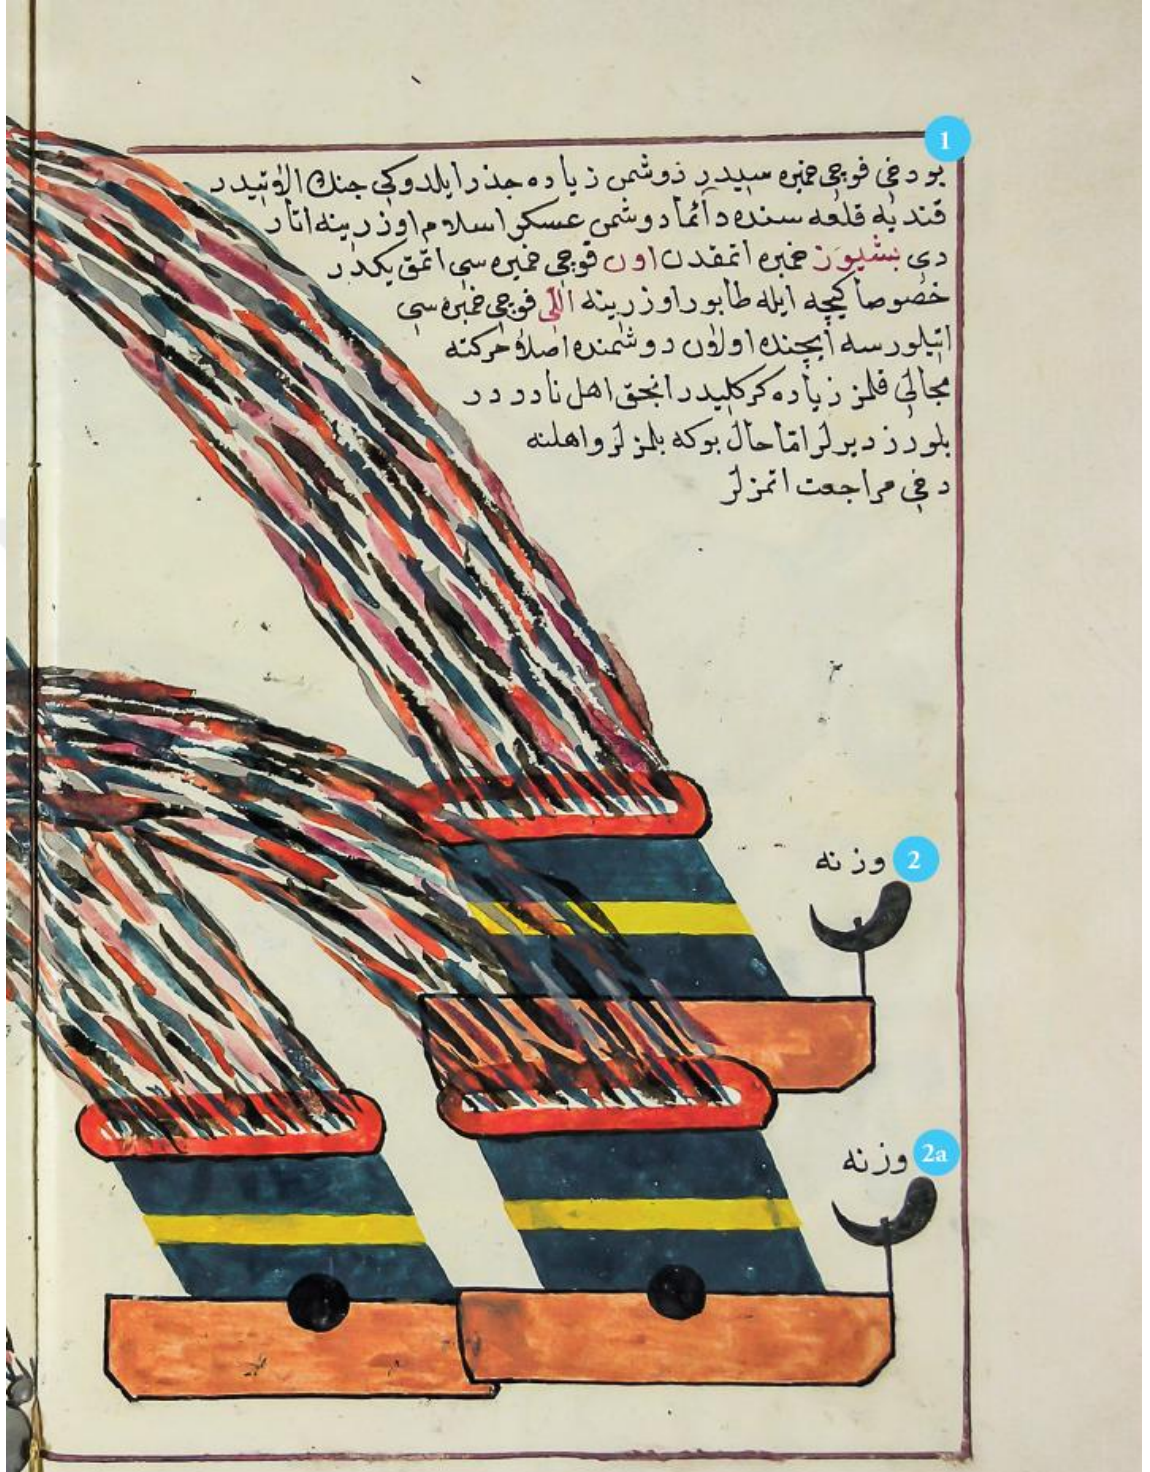 1
بو دخی فوچی خمبره سیدر دوشمن زیاده جذر ایلدوکی جنك الاتیدر
قندیه قلعه سنده دآئما دوشمن عسکر اسلام اوزرینه اتار
دی بشیوز خمبره اتمقدن اون فوچی خمبره سی اتمق یکدر
خصوصا کیجه ایله طابور اوزرینه اللی فوچی خمبره سی
اتیلورسه ایچنده اولان دوشمنده اصلا حرکته
مجالی قلمز زیاده کرکلیدر انجق اهل نادردر
بلورز دیرلر اما حال بوکه بلمزلر واهلنه
دخی مراجعت اتمزلر
2 وزنه
2a وزنه